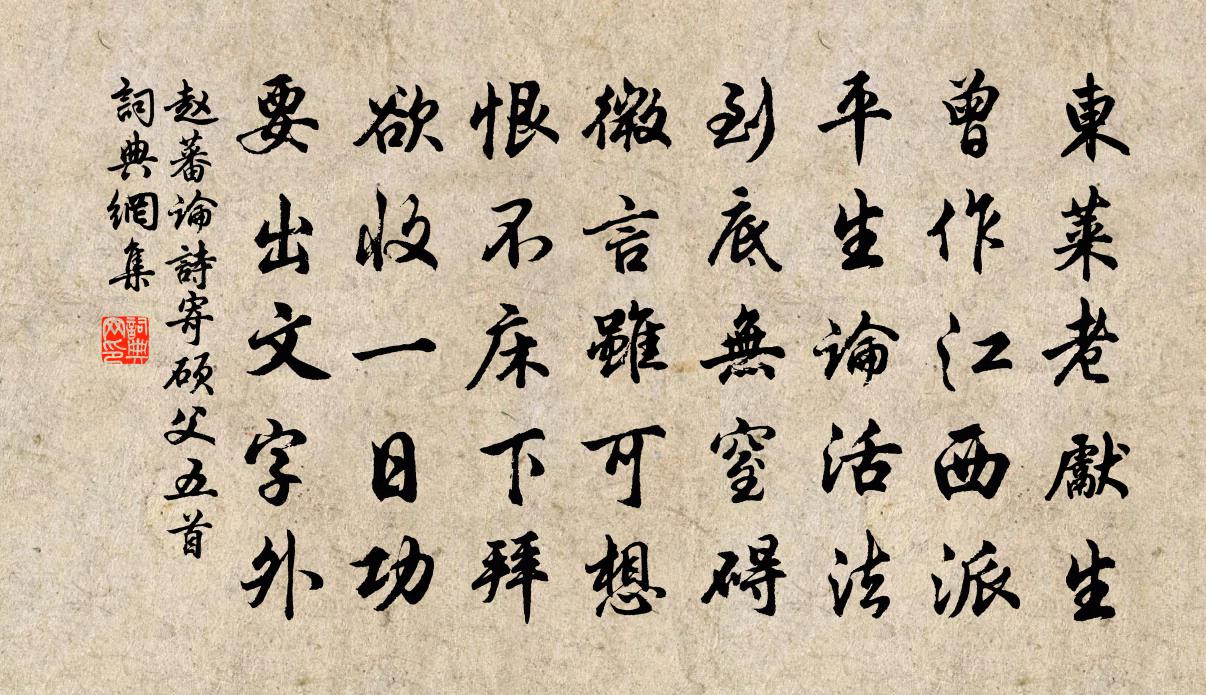 東萊老獻生
曾作江西派
平生論活法
到底無窒碍
微言雖可想
恨不床下拜
欲收一日功
要出文字外
赵蕃論詩寄硕父五首
詞典網集
詞典网印